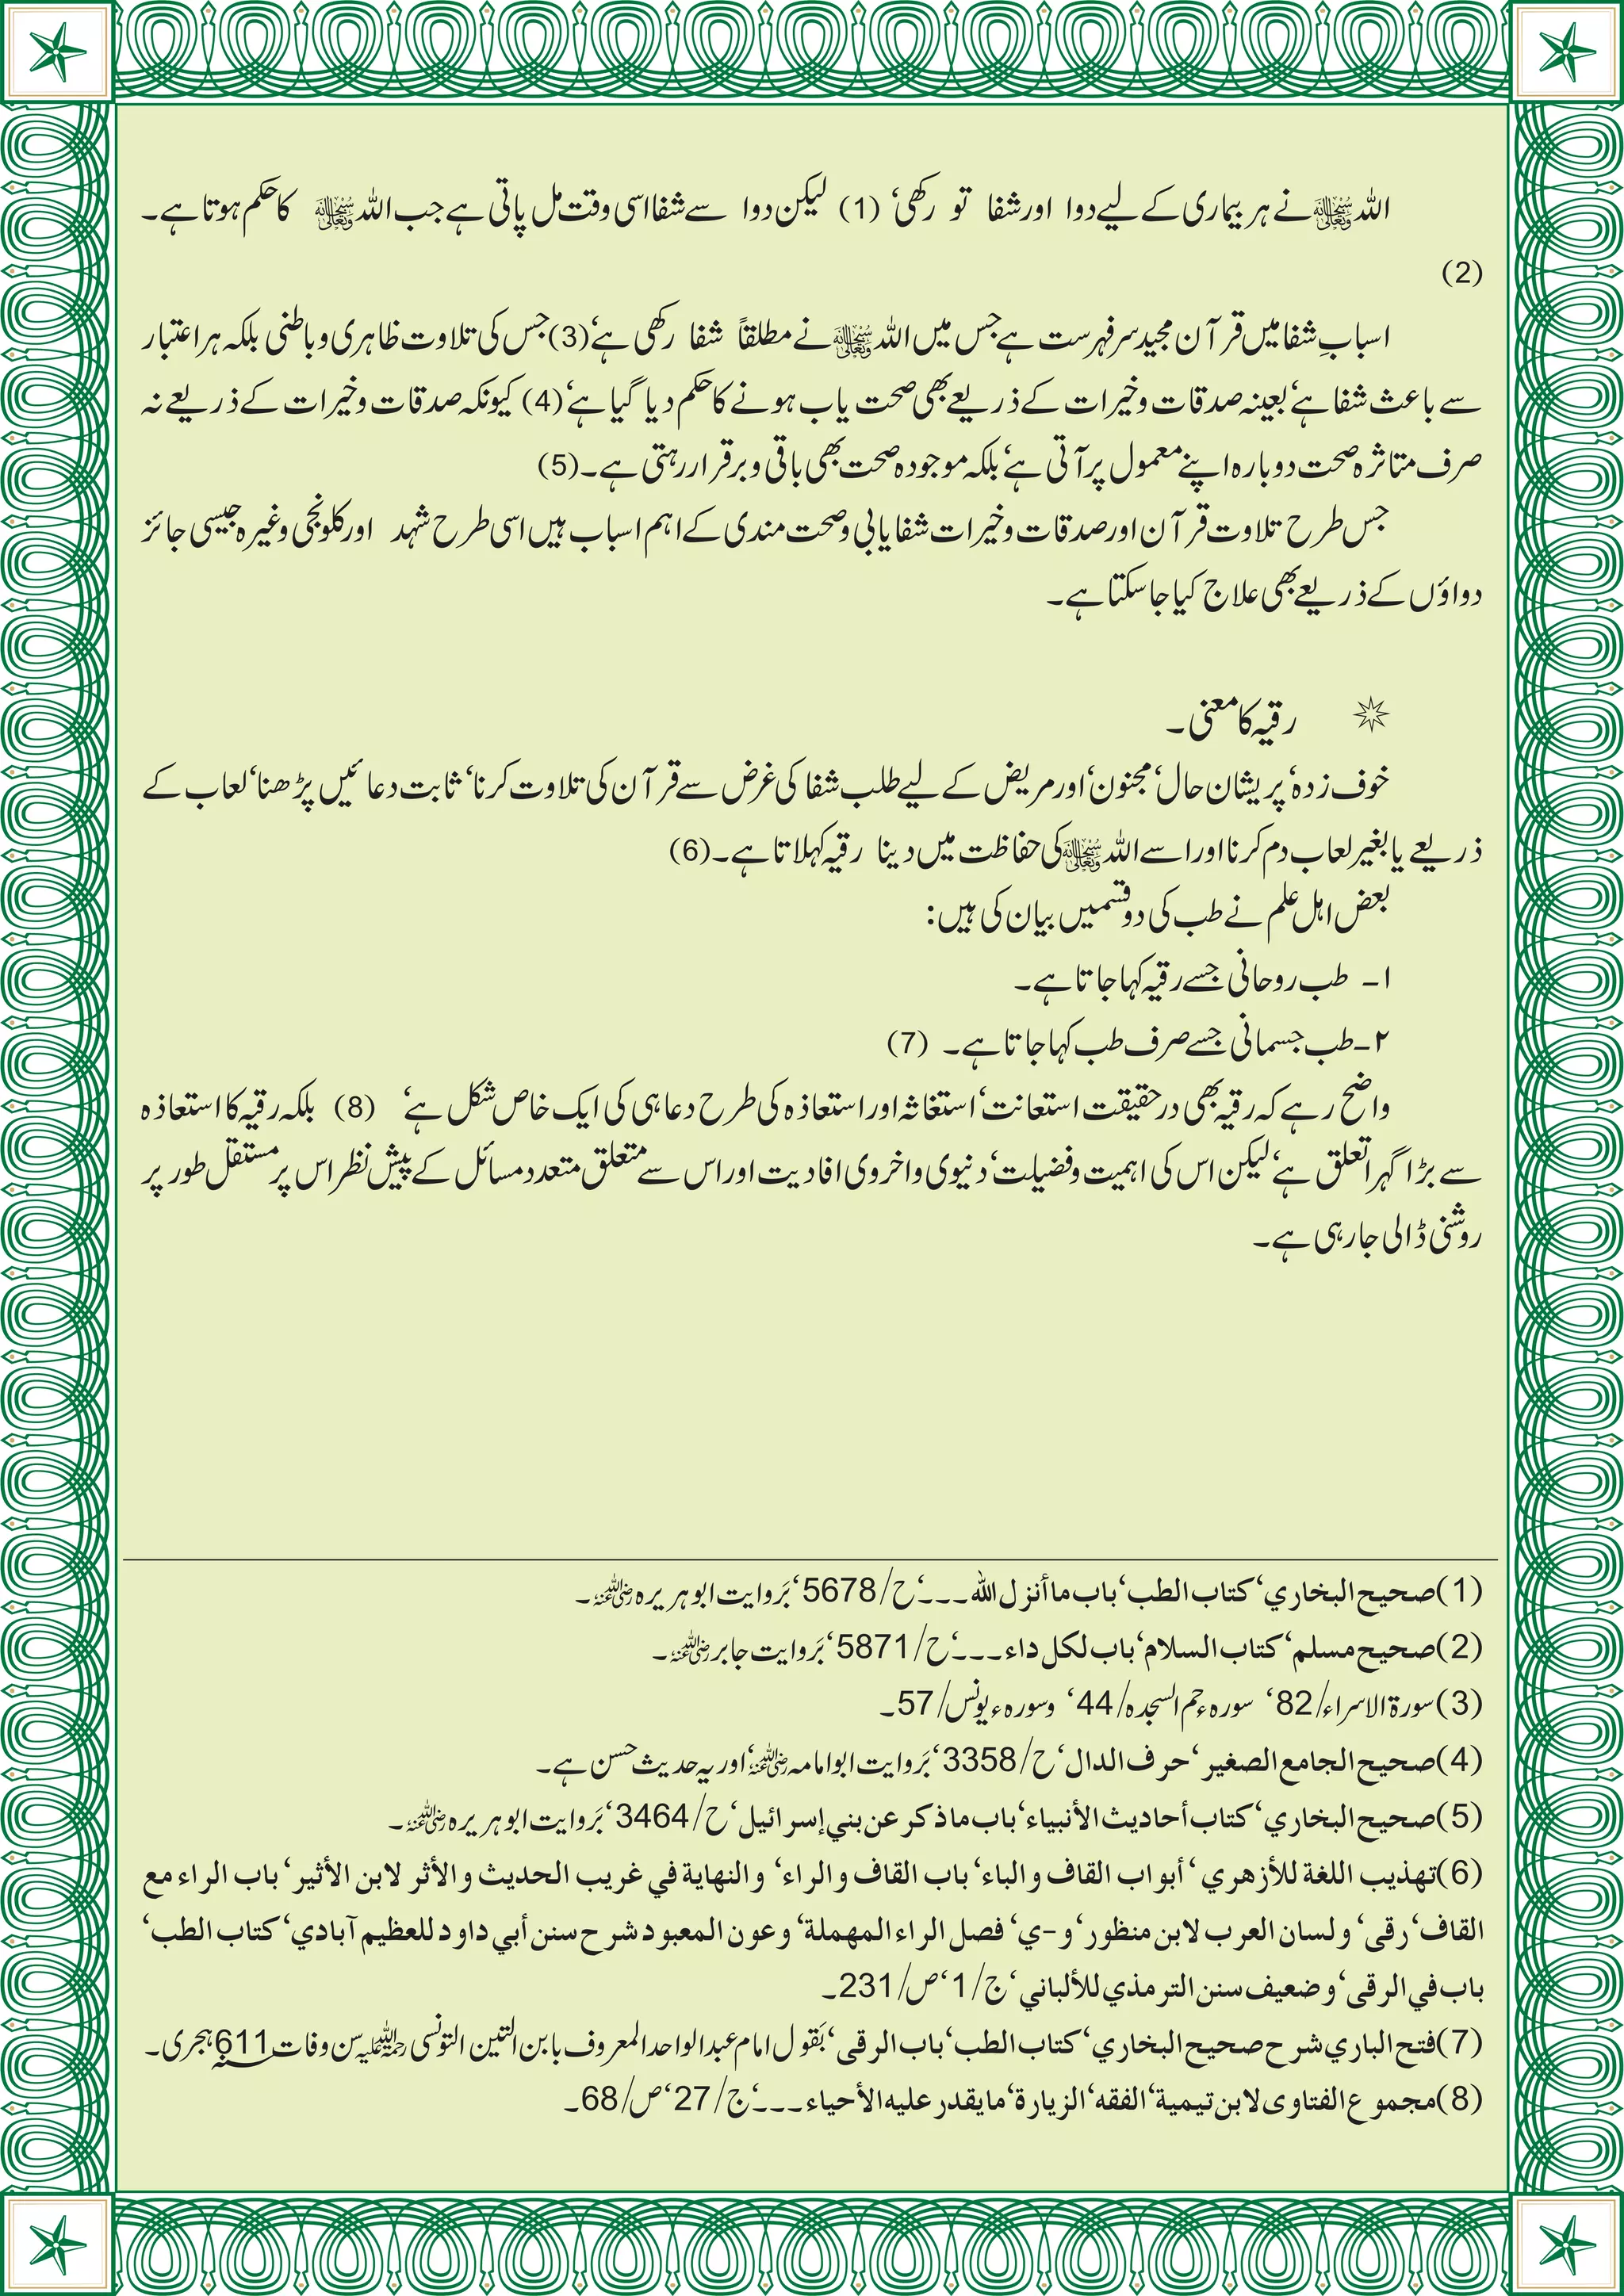 اللہ ﷻ نے ہر بیماری کے لیے دوا اور شفا تو رکھی‘ (1) لیکن دوا سے شفا اسی وقت مل پاتی ہے جب اللہ ﷻ کا حکم ہوتا ہے۔
(2)
اسبابِ شفا میں قرآن مجید سرفہرست ہے جس میں اللہ ﷻ نے مطلقاً شفا رکھی ہے‘(3) جس کی تلاوت ظاہری و باطنی بلکہ ہر اعتبار
سے باعث شفا ہے‘ بعینہ صدقات و خیرات کے ذریعے بھی صحت یاب ہونے کا حکم دیا گیا ہے‘(4) کیونکہ صدقات و خیرات کے ذریعے نہ
صرف متاثرہ صحت دوبارہ اپنے معمول پر آتی ہے‘ بلکہ موجودہ صحت بھی باقی و برقرار رہتی ہے۔(5)
جس طرح تلاوت قرآن اور صدقات و خیرات شفایابی و صحت مندی کے اہم اسباب ہیں اسی طرح شہد اور کلونجی وغیرہ جیسی جائز
دواؤں کے ذریعے بھی علاج کیا جاسکتا ہے۔
رقیہ کا معنی۔
خوف زدہ‘ پریشان حال‘ مجنون‘ اور مریض کے لیے طلب شفا کی غرض سے قرآن کی تلاوت کرنا‘ ثابت دعائیں پڑھنا‘ لعاب کے
ذریعے یا بغیر لعاب دم کرنا اور اسے اللہ ﷻ کی حفاظت میں دینا رقیہ کہلاتا ہے۔(6)
بعض اہل علم نے طب کی دو قسمیں بیان کی ہیں:
۱- طب روحانی جسے رقیہ کہا جاتا ہے۔
۲-طب جسمانی جسے صرف طب کہا جاتا ہے۔ (7)
واضح رہے کہ رقیہ بھی درحقیقت استعانت‘ استغاثہ اور استعاذہ کی طرح دعا ہی کی ایک خاص شکل ہے‘ (8) بلکہ رقیہ کا استعاذہ
سے بڑا گہرا تعلق ہے‘ لیکن اس کی اہمیت و فضیلت‘ دنیوی و اخروی افادیت اور اس سے متعلق متعدد مسائل کے پیش نظر اس پر مستقل طور پر
روشنی ڈالی جارہی ہے۔
(1) صحيح البخاري‘ كتاب الطب‘ باب ما أنزل الله ۔۔۔‘ ح/5678‘ بَروایت ابوہریرہ ؓ۔
(2) صحيح مسلم‘ كتاب السلام‘ باب لكل داء ۔۔۔‘ ح/5871‘ بَروایت جابر ؓ۔
(3) سورۃ الاسراء/82‘ سورہء حم السجدہ/44‘ وسورہء یونس/57۔
(4) صحيح الجامع الصغير‘ حرف الدال‘ ح/3358‘ بَروایت ابوامامہ ؓ‘ اور یہ حدیث حسن ہے۔
(5) صحيح البخاري‘ كتاب أحاديث الأنبياء‘ باب ما ذكر عن بني إسرائيل‘ ح/3464‘ بَروایت ابوہریرہ ؓ۔
(6) تهذيب اللغة للأزهري‘ أبواب القاف والباء‘ باب القاف والراء‘ والنهاية في غريب الحديث والأثر لابن الأثير‘ باب الراء مع
القاف‘ رقى‘ ولسان العرب لابن منظور‘ و-ي‘ فصل الراء المهملة‘ وعون المعبود شرح سنن أبي داود للعظيم آبادي‘ كتاب الطب‘
باب في الرقى‘ وضعيف سنن الترمذي للألباني‘ ج/1‘ ص/231۔
(7) فتح الباري شرح صحيح البخاري‘ كتاب الطب‘ باب الرقى‘ بَقول امام عبدالواحد المعروف بابن التین التونسی ؒ سن وفات 611 ہجری۔
(8) مجموع الفتاوى لابن تيمية‘ الفقه‘ الزيارة‘ ما يقدر عليه الأحياء ۔۔۔‘ ج/27‘ ص/68۔